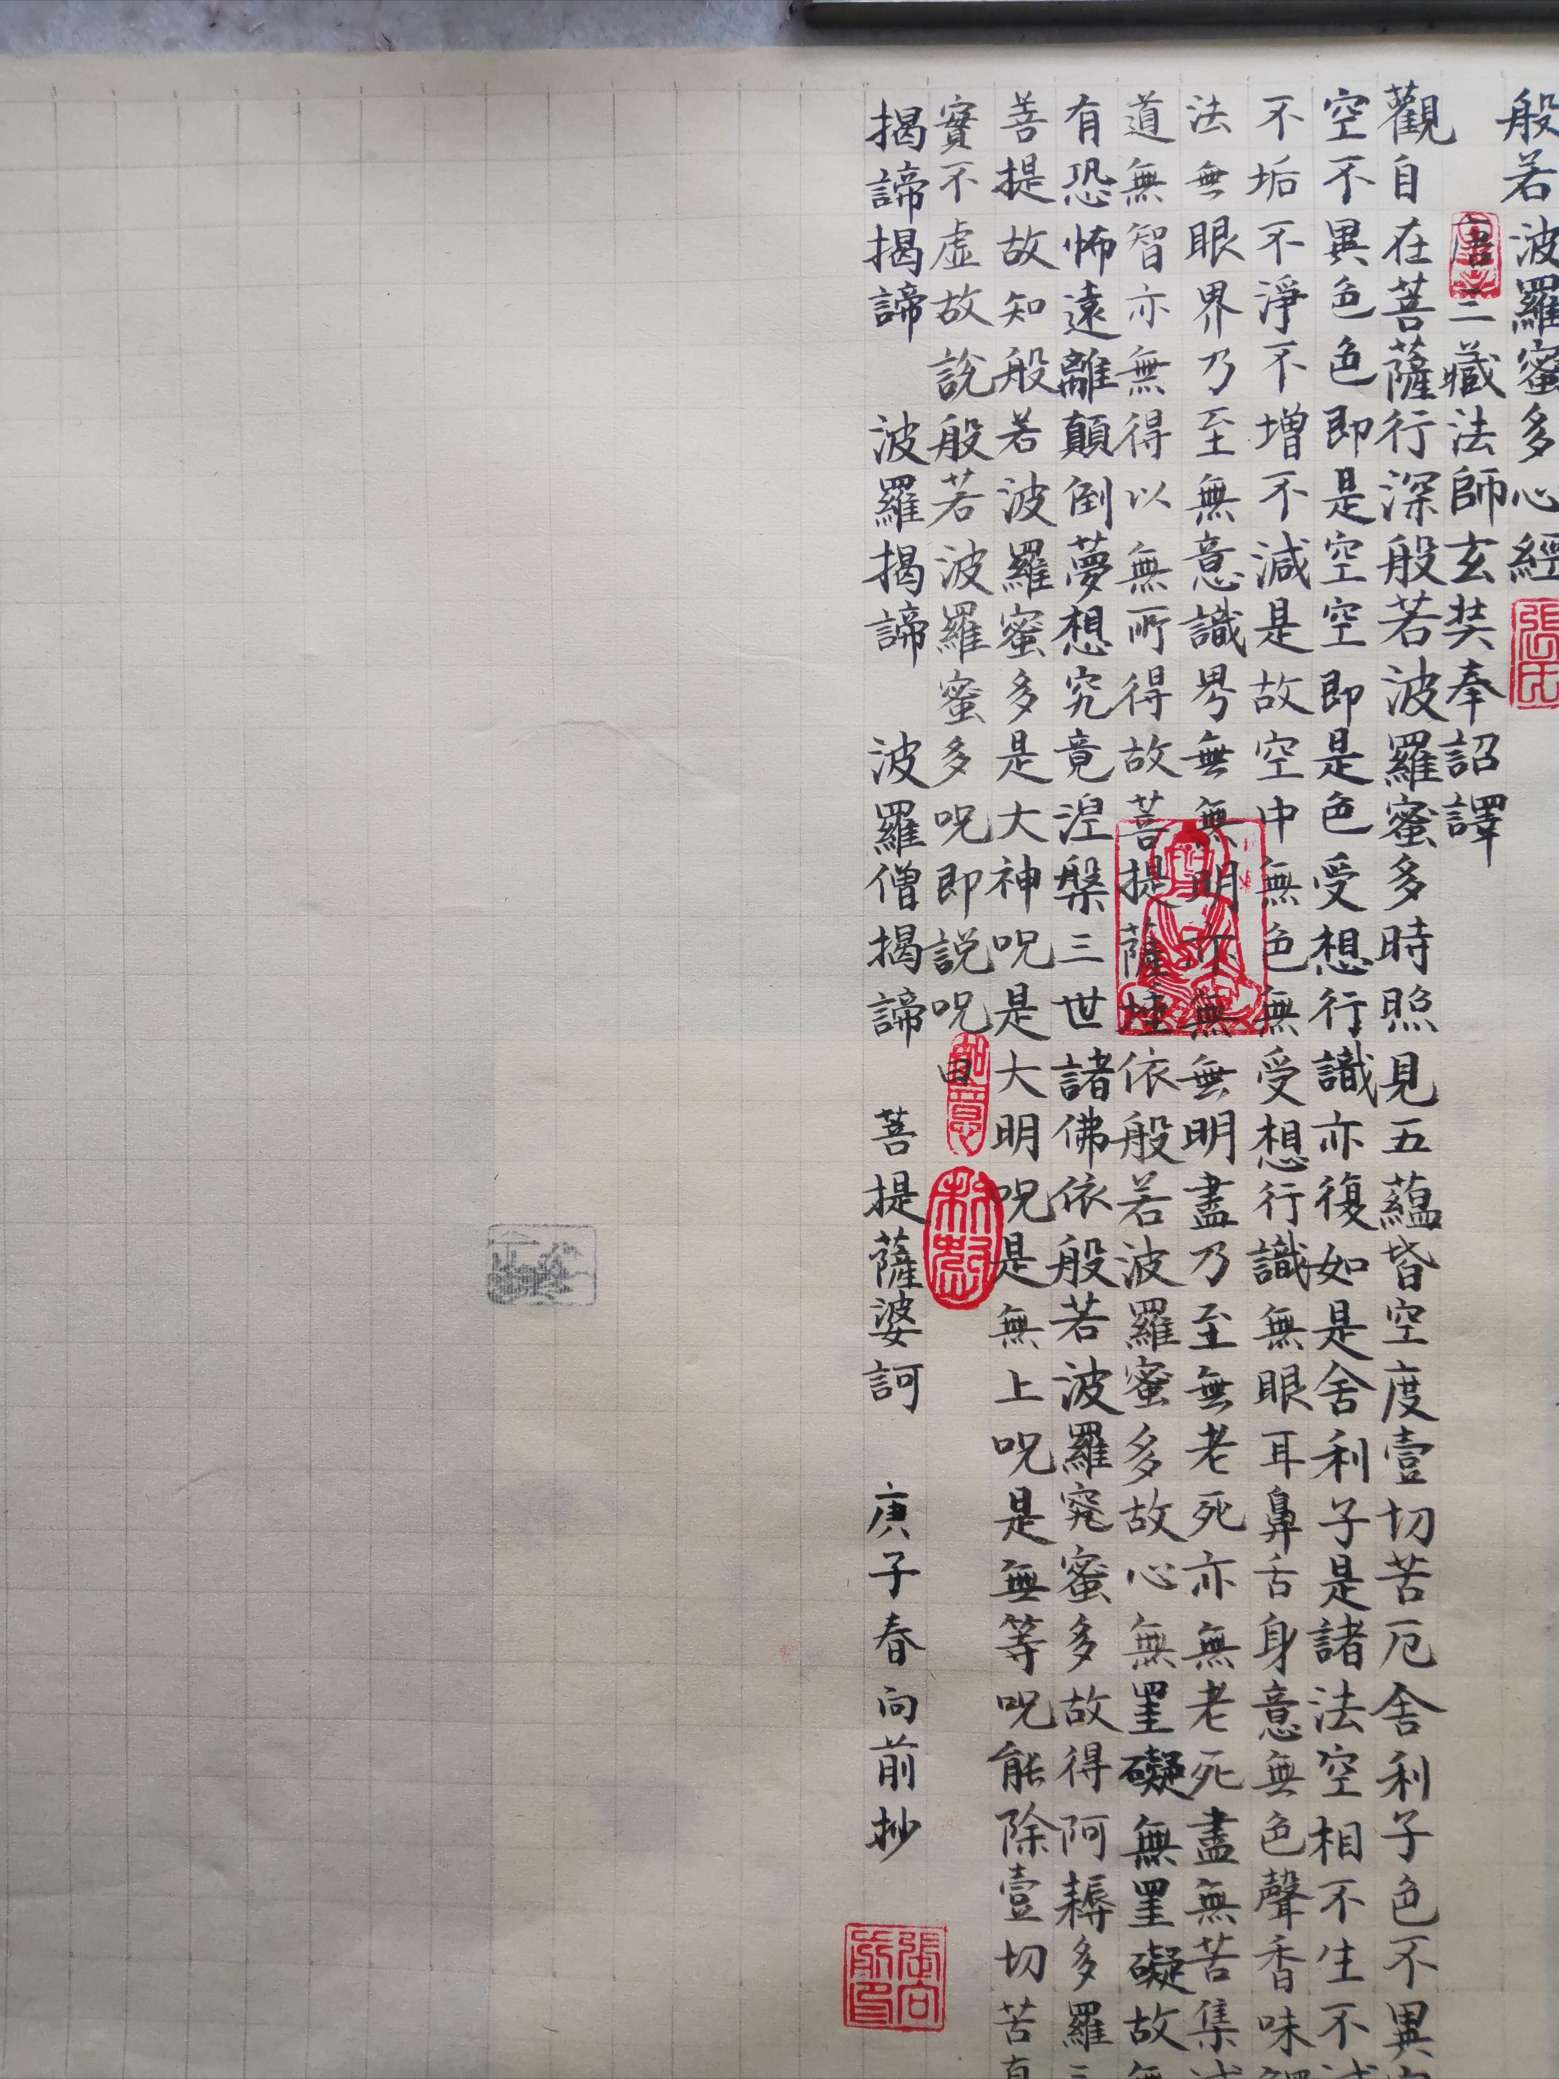 般若波羅蜜多心經
唐三藏法師玄奘奉詔譯
觀自在菩薩行深般若波羅蜜多時照見五蘊皆空度壹切苦厄舍利子色不異
空不異色色即是空空即是色受想行識亦復如是舍利子是諸法空相不生不滅
不垢不淨不增不減是故空中無色無受想行識無眼耳鼻舌身意無色聲香味觸
法無眼界乃至無意識界無無明亦無無明盡乃至無老死亦無老死盡無苦集滅
道無智亦無得以無所得故菩提薩埵依般若波羅蜜多故心無罣礙無罣礙故無
有恐怖遠離顛倒夢想究竟涅槃三世諸佛依般若波羅蜜多故得阿耨多羅三
菩提故知般若波羅蜜多是大神呪是大明呪是無上呪是無等呪能除壹切苦真
實不虛故說般若波羅蜜多呪即説呪曰
揭諦揭諦 波羅揭諦 波羅僧揭諦 菩提薩婆訶 庚子春向前抄
張氏
如意
張向前印